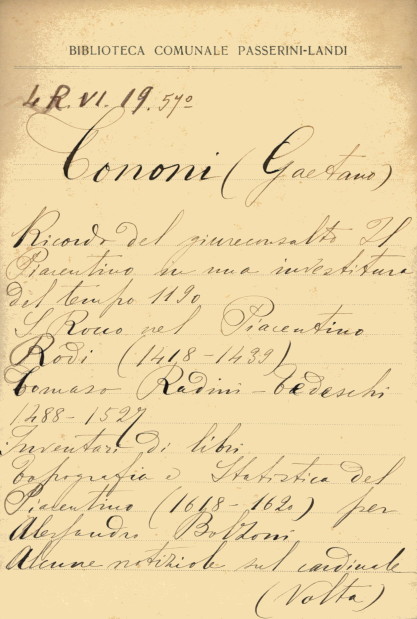 BIBLIOTECA COMUNALE PASSERINI-LANDI
4 R. VI. 19. 57º
Tononi (Gaetano)
Ricordo del giureconsulto Il
Piacentino in una investitura
del tempo 1190
S. Rocco nel Piacentino
Rodi (1418-1439)
Tomaso Radini-Tedeschi
1488-1527
Inventari di libri
Topografia e Statistica del
Piacentino (1618-1620) per
Alessandro Bolzoni
Alcune notiziole sul cardinale
(Volta)